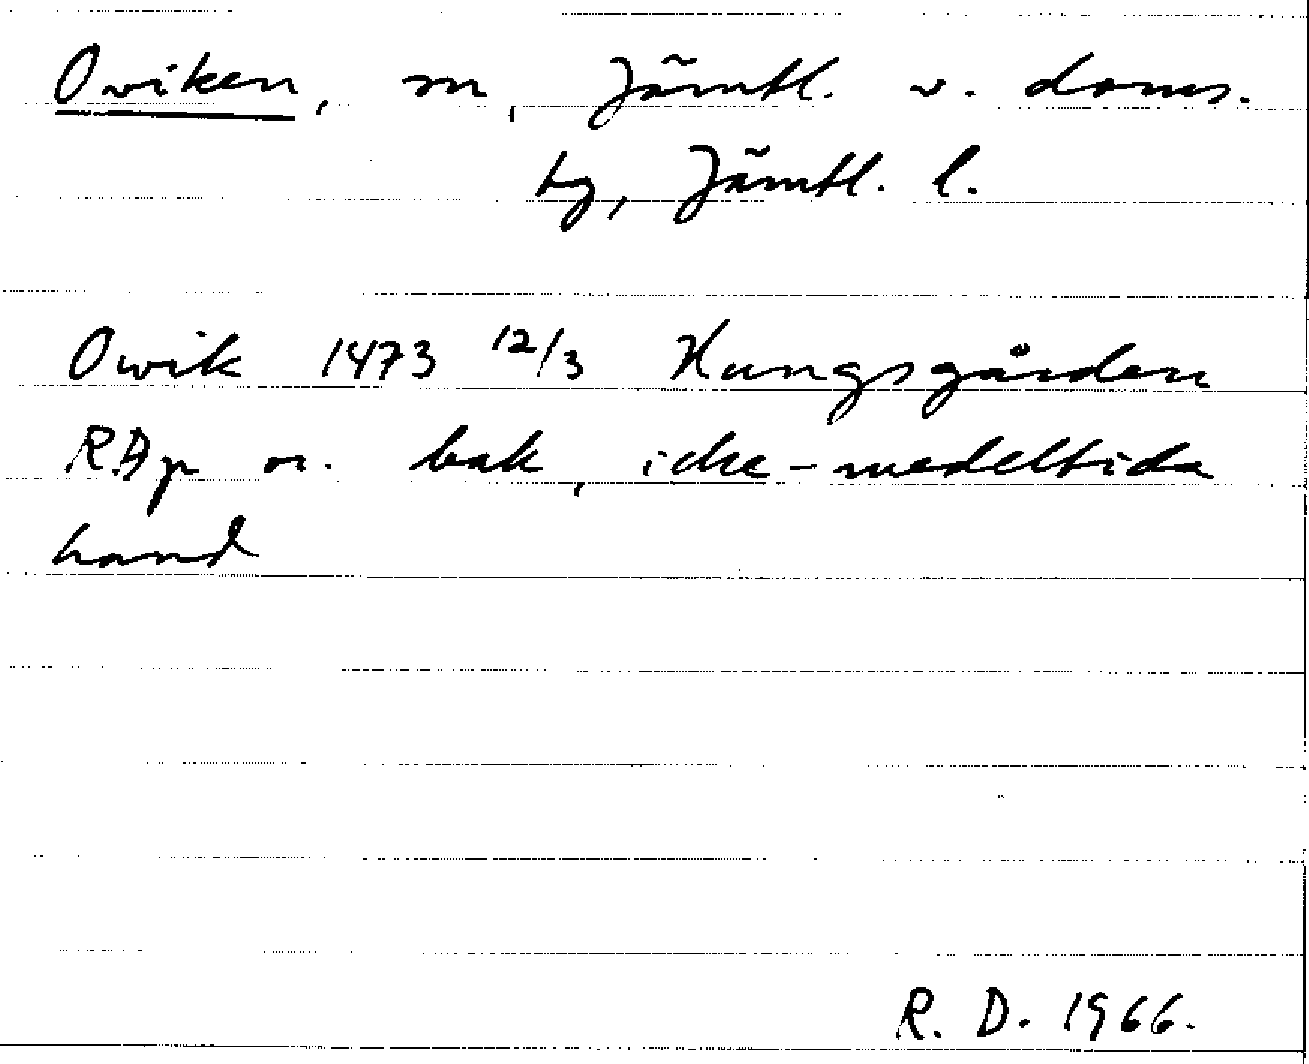 Oviken, sn, Jämtl. v. doms.
tg, Jämtl. l.
Owik 1473 12/3 Kungsgården
RAp or. bak, icke-medeltida
hand
R. D. 1966.